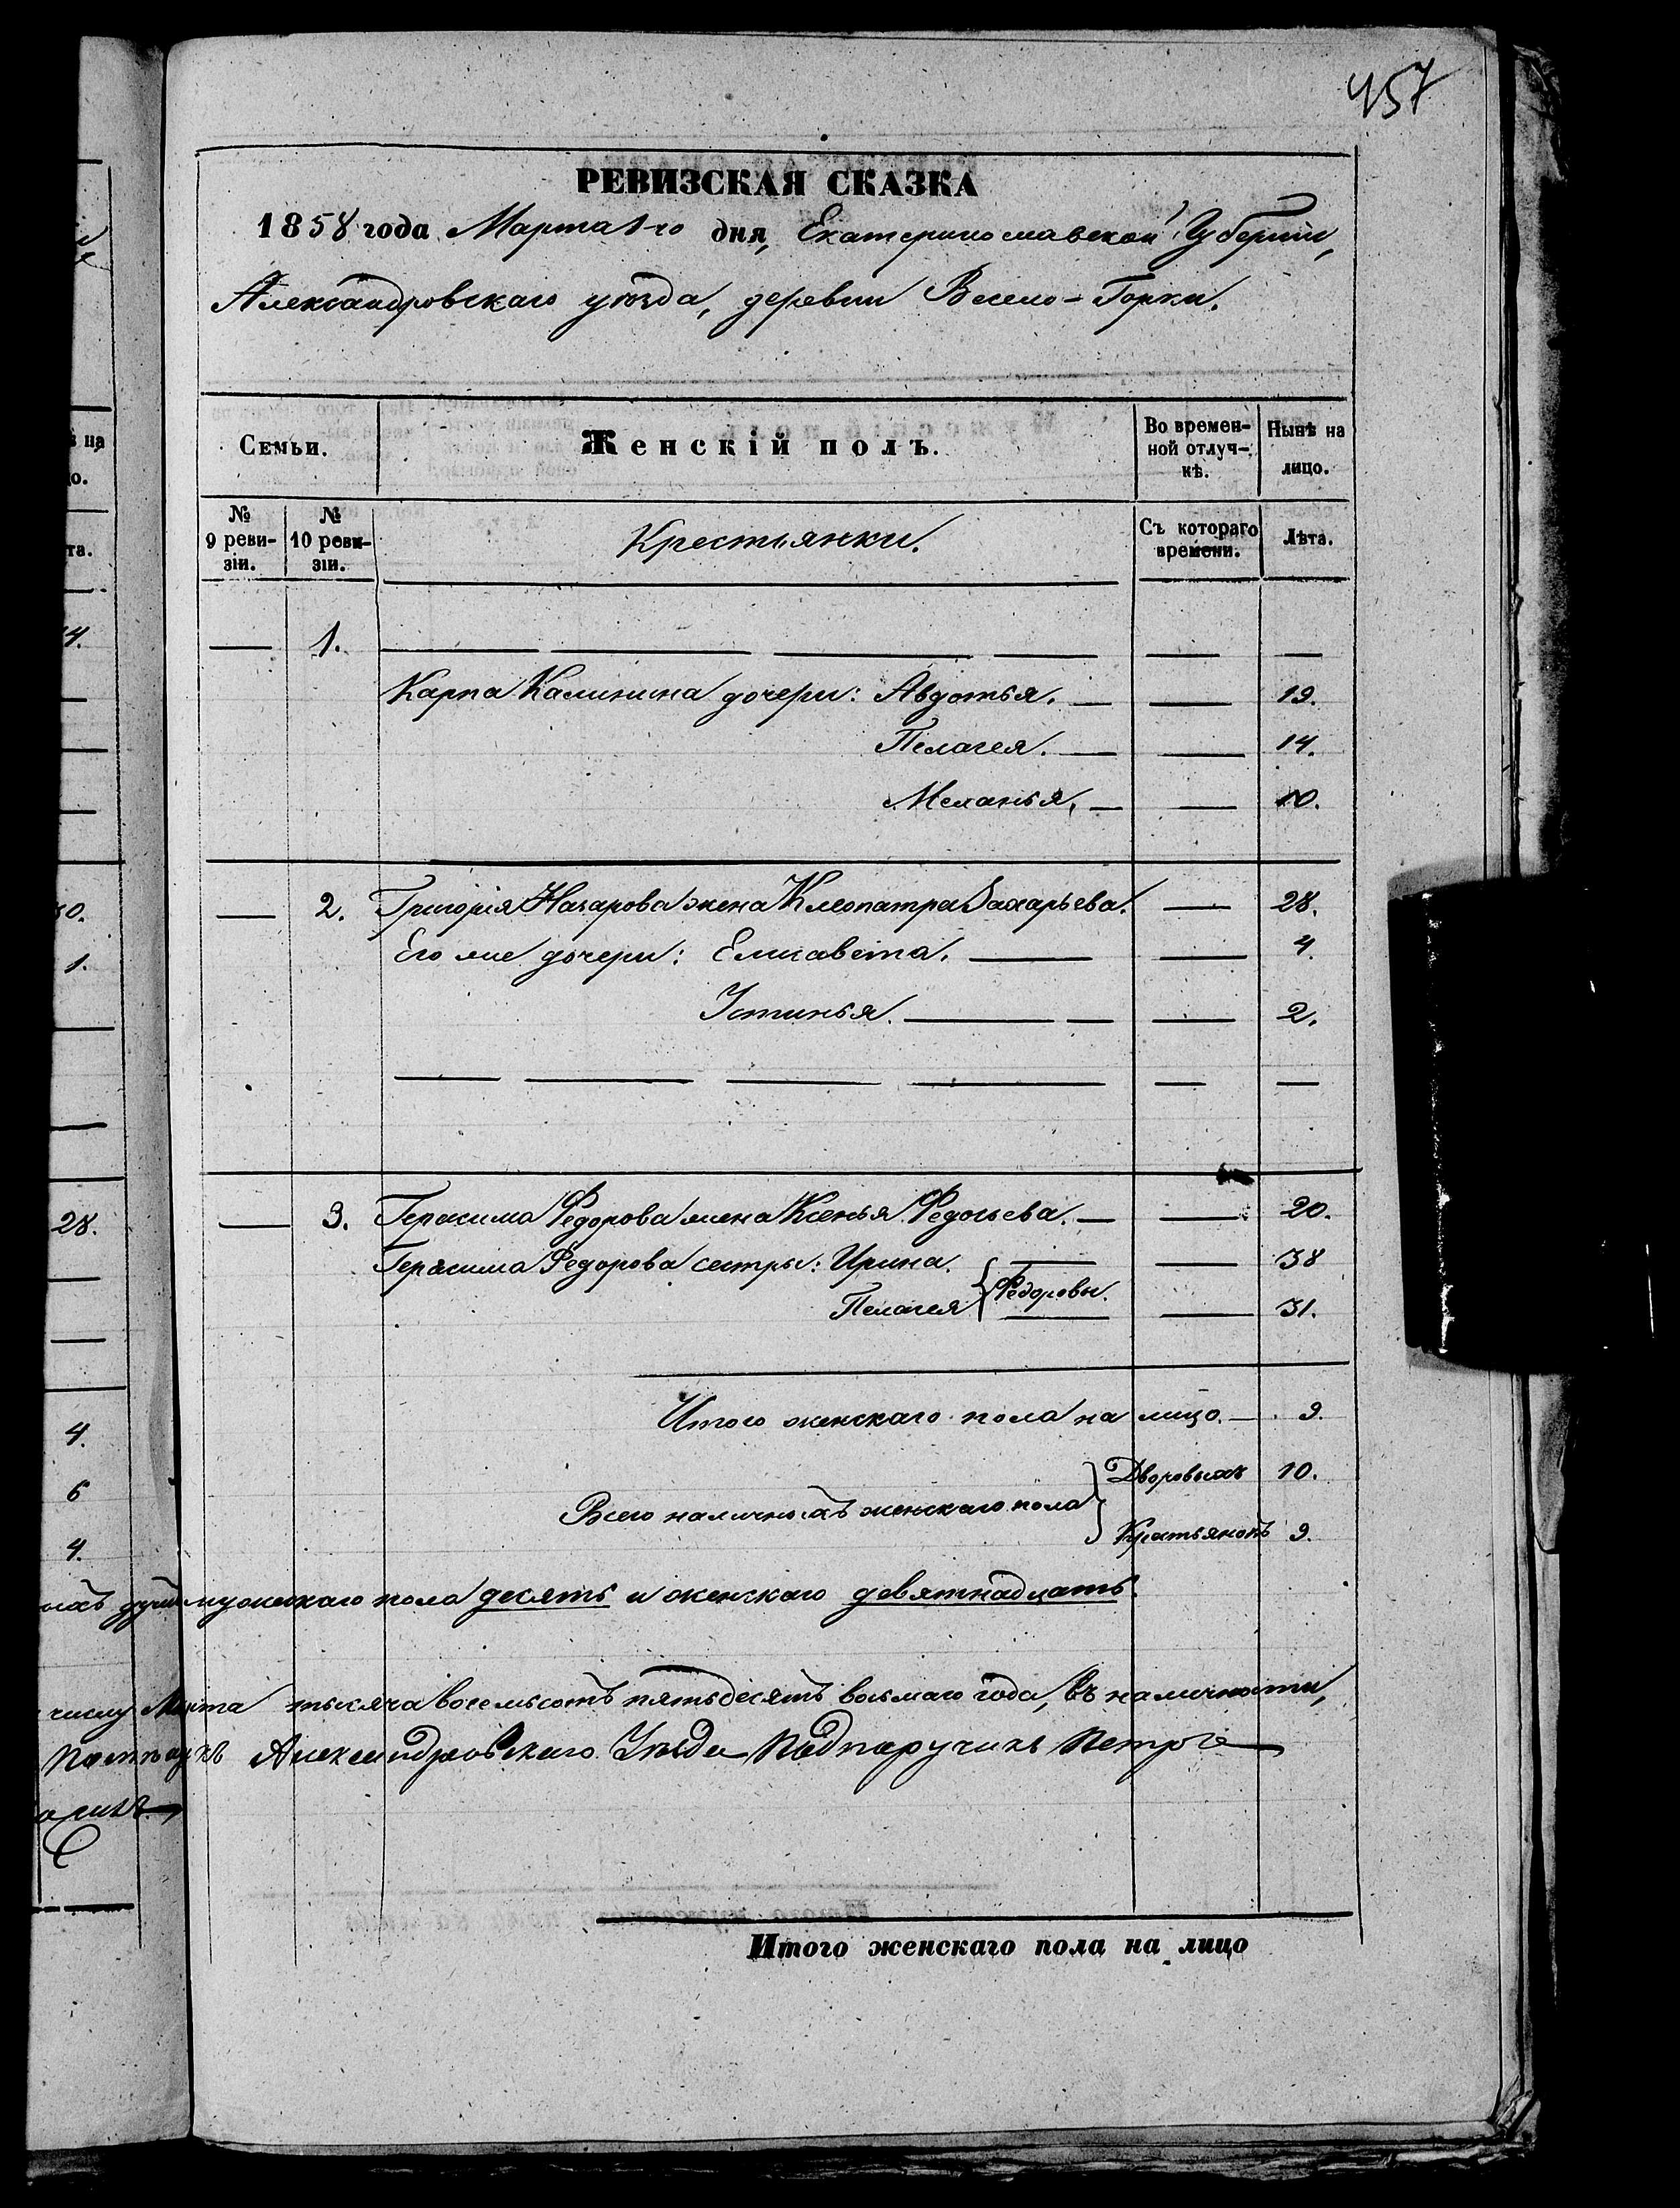 457
РЕВИЗСКАЯ СКАЗКА
1858 года Марта 1-го дня, Екатеринославской Губерніи,
Александровскаго уѣзда, деревни Весело-Горки.
Семьи.
Женскій полъ.
Во времен-
ной отлуч-
кѣ.
Нынѣ на
лицо.
№
9 реви-
зіи.
№
10 реви-
зіи.
Крестьянки.
Съ котораго
времени.
Лѣта.
— 1. — — — — — —
Карпа Калинина дочери: Авдотья. — — 19.
Пелагея. — — 14.
Меланья. — — 10.
— 2. Григорія Назарова жена Клеопатра Захарьева. — 28.
Его же дочери: Елисавета. — — 4.
Устинья. — — — 2.
— — — — — —
— 3. Герасима Федорова жена Ксенья Федосьева. — — 20.
Герасима Федорова сестры: Ирина. — — 38
Пелагея } Федоровы. — — 31.
Итого женскаго пола на лицо. — 9.
Всего наличныхъ женскаго пола } Дворовыхъ 10.
Крестьянокъ 9.
душъ мужескаго пола десять и женскаго девятнадцать.
числу Марта тысяча восемьсотъ пятьдесятъ восьмаго года, въ наличности,
Александровскаго Уѣзда Подпоручикъ Петръ
Итого женскаго пола на лицо
ѣ на
о.
та.
14.
30.
1.
28.
4.
6
4.